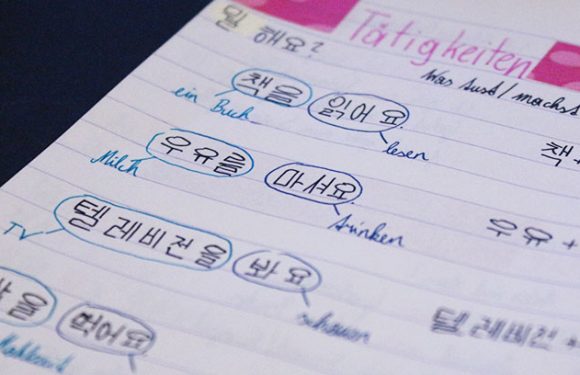 뭘 해요? Tätigkeiten
Was tust/machst
책을 읽어요
ein Buch lesen
책
우유를 마셔요
Milch trinken
우유 +
텔레비전을 봐요
TV schauen
텔레비전 +
을 먹어요